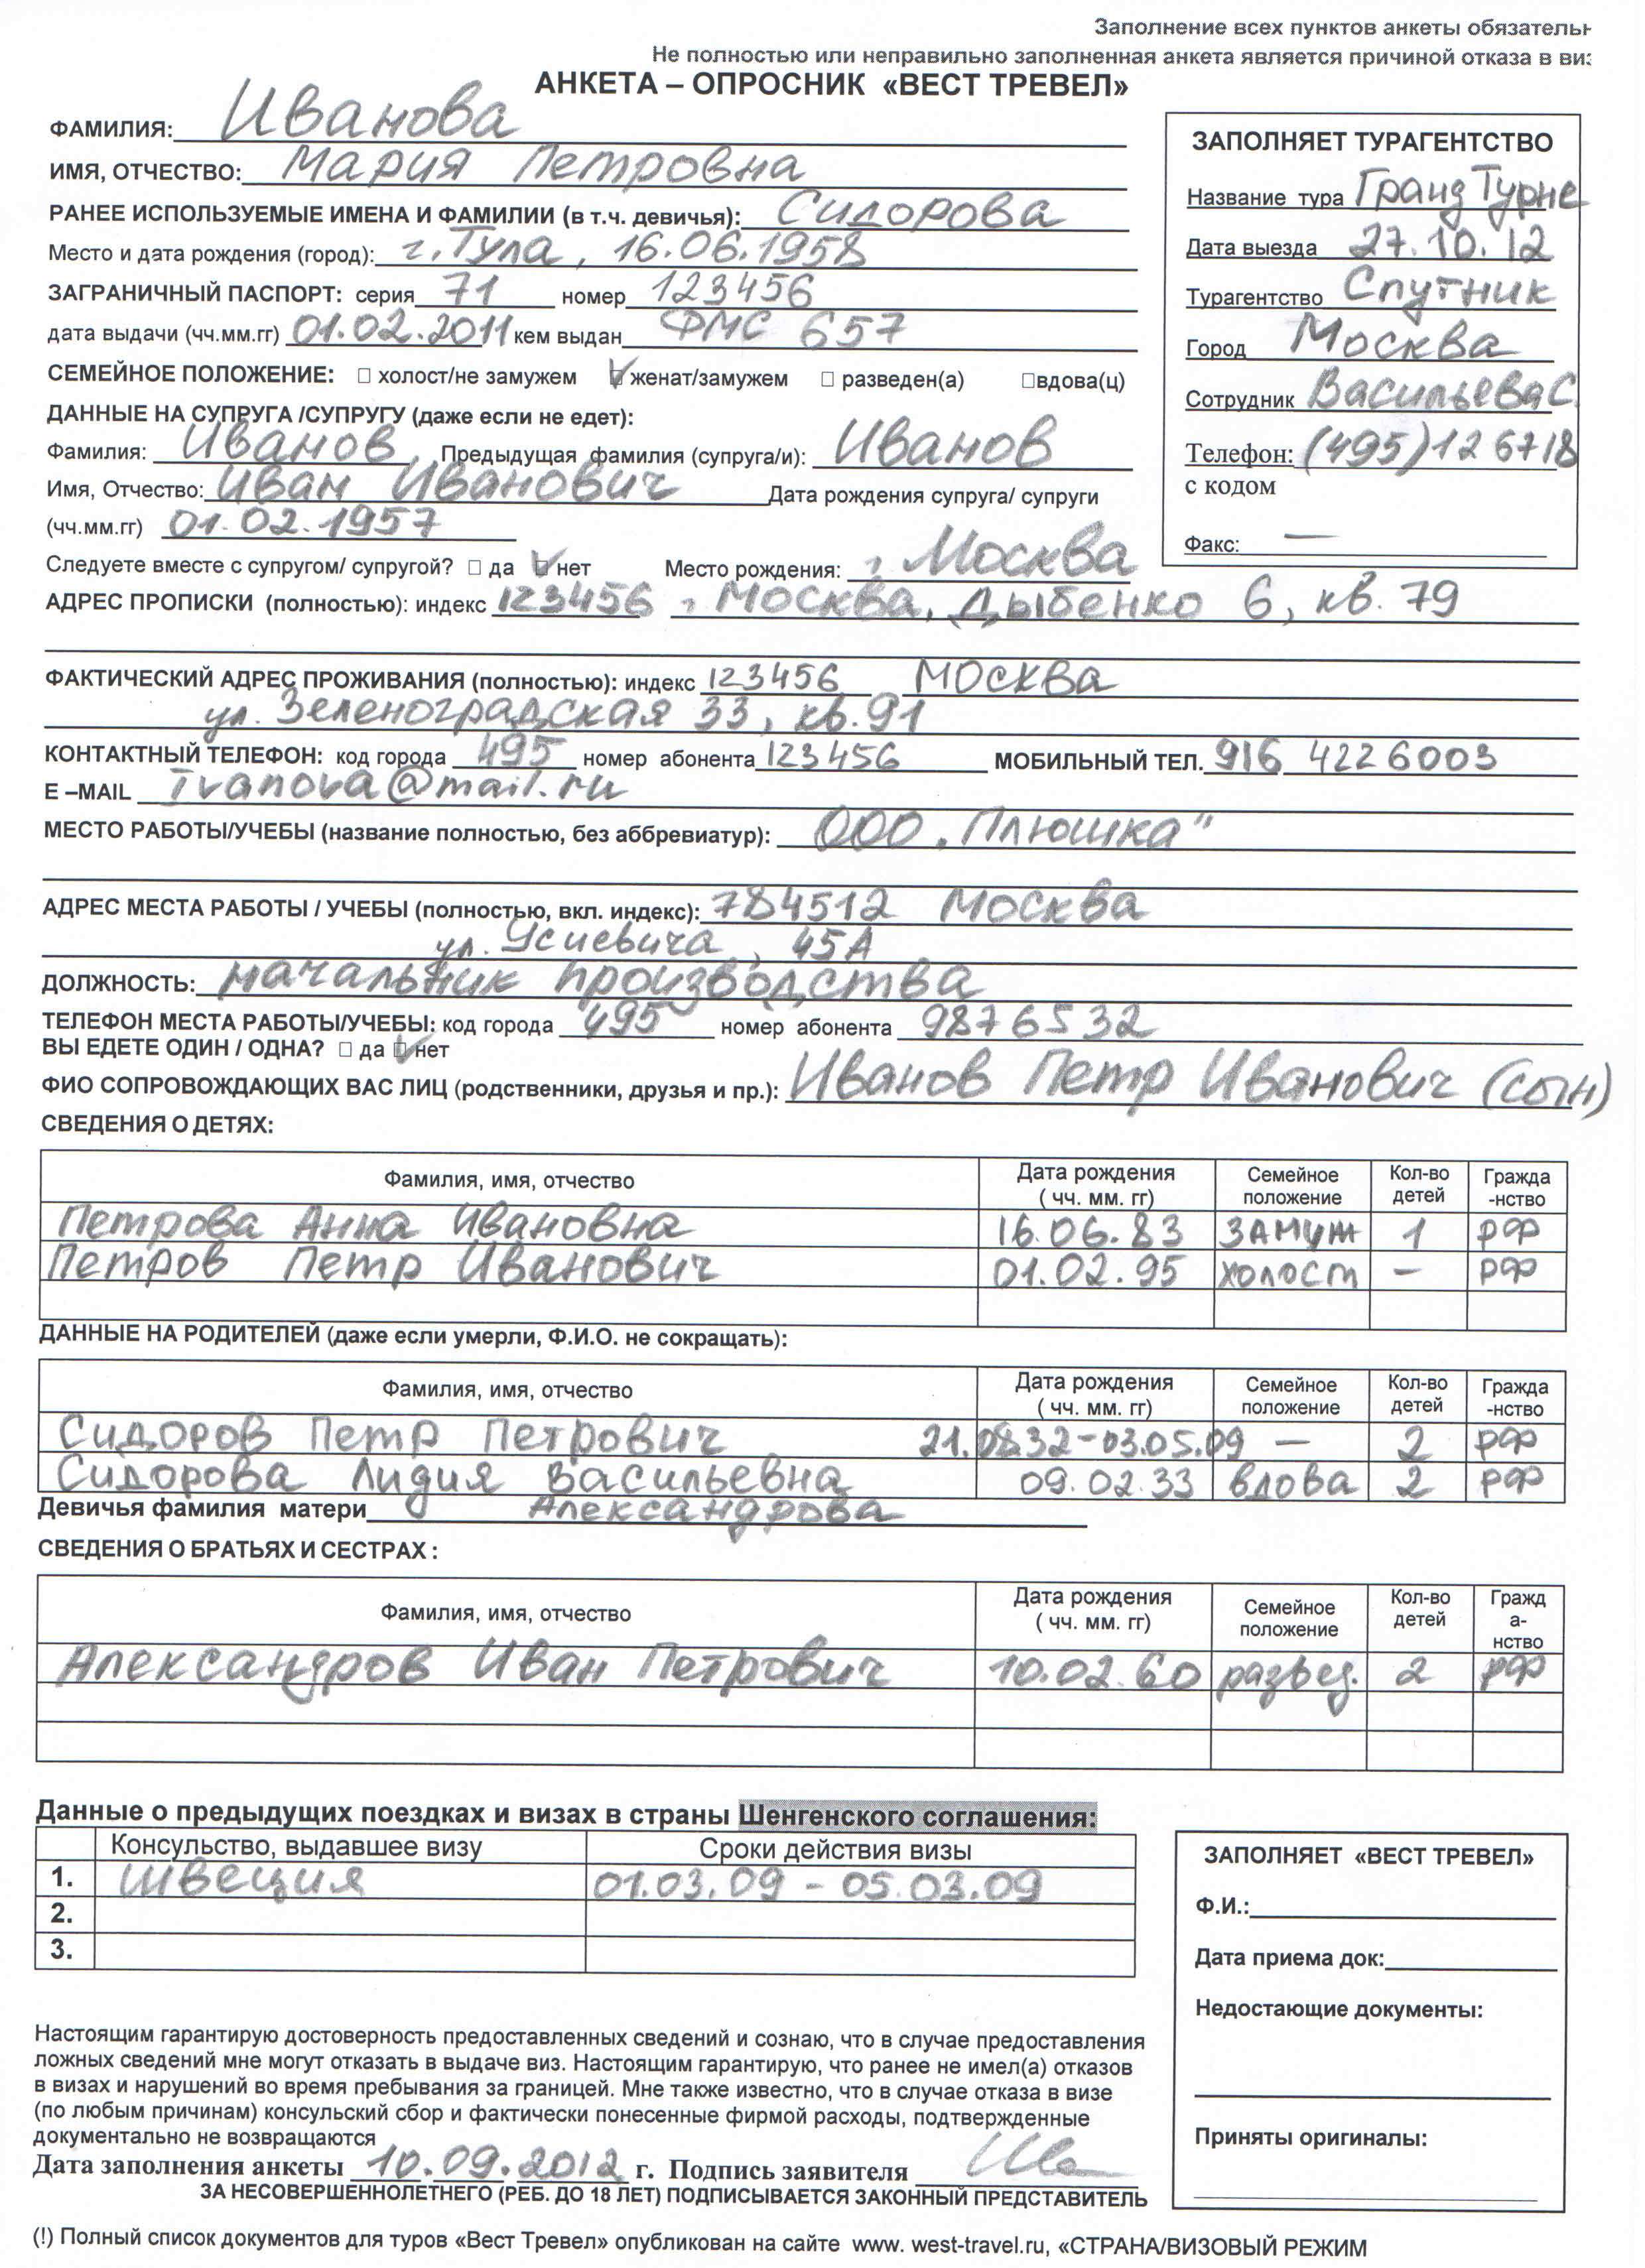 Заполнение всех пунктов анкеты обязательн
Не полностью или неправильно заполненная анкета является причиной отказа в виз
АНКЕТА – ОПРОСНИК «ВЕСТ ТРЕВЕЛ»
ФАМИЛИЯ: Иванова
ИМЯ, ОТЧЕСТВО: Мария Петровна
РАНЕЕ ИСПОЛЬЗУЕМЫЕ ИМЕНА И ФАМИЛИИ (в т.ч. девичья): Сидорова
Место и дата рождения (город): г. Тула, 16.06.1958
ЗАГРАНИЧНЫЙ ПАСПОРТ: серия 71 номер 123456
дата выдачи (чч.мм.гг) 01.02.2011 кем выдан ФМС 657
СЕМЕЙНОЕ ПОЛОЖЕНИЕ: □ холост/не замужем ☑ женат/замужем □ разведен(а) □вдова(ц)
ДАННЫЕ НА СУПРУГА /СУПРУГУ (даже если не едет):
Фамилия: Иванов Предыдущая фамилия (супруга/и): Иванов
Имя, Отчество: Иван Иванович Дата рождения супруга/ супруги
(чч.мм.гг) 01.02.1957
Следуете вместе с супругом/ супругой? □ да ☑ нет Место рождения: г. Москва
ЗАПОЛНЯЕТ ТУРАГЕНТСТВО
Название тура Гранд Турне
Дата выезда 27.10.12
Турагентство Спутник
Город Москва
Сотрудник Васильева С.
Телефон: (495)126718
с кодом
Факс: —
АДРЕС ПРОПИСКИ (полностью): индекс 123456 г. Москва, Дыбенко 6, кв. 79
ФАКТИЧЕСКИЙ АДРЕС ПРОЖИВАНИЯ (полностью): индекс 123456 Москва
ул. Зеленоградская 33, кв. 91
КОНТАКТНЫЙ ТЕЛЕФОН: код города 495 номер абонента 123456 МОБИЛЬНЫЙ ТЕЛ. 916 4226003
E –MAIL Ivanova@mail.ru
МЕСТО РАБОТЫ/УЧЕБЫ (название полностью, без аббревиатур): ООО „Плюшка"
АДРЕС МЕСТА РАБОТЫ / УЧЕБЫ (полностью, вкл. индекс): 784512 Москва
ул. Усиевича, 45А
ДОЛЖНОСТЬ: начальник производства
ТЕЛЕФОН МЕСТА РАБОТЫ/УЧЕБЫ: код города 495 номер абонента 9876532
ВЫ ЕДЕТЕ ОДИН / ОДНА? □ да ☑ нет
ФИО СОПРОВОЖДАЮЩИХ ВАС ЛИЦ (родственники, друзья и пр.): Иванов Петр Иванович (сын)
СВЕДЕНИЯ О ДЕТЯХ:
Фамилия, имя, отчество Дата рождения ( чч. мм. гг) Семейное положение Кол-во детей Гражда-нство
Петрова Анна Ивановна 16.06.83 замуж 1 РФ
Петров Петр Иванович 01.02.95 холост – РФ
ДАННЫЕ НА РОДИТЕЛЕЙ (даже если умерли, Ф.И.О. не сокращать):
Фамилия, имя, отчество Дата рождения ( чч. мм. гг) Семейное положение Кол-во детей Гражда-нство
Сидоров Петр Петрович 21.0832-03.05.09 — 2 РФ
Сидорова Лидия Васильевна 09.02.33 вдова 2 РФ
Девичья фамилия матери Александрова
СВЕДЕНИЯ О БРАТЬЯХ И СЕСТРАХ :
Фамилия, имя, отчество Дата рождения ( чч. мм. гг) Семейное положение Кол-во детей Гражда-нство
Александров Иван Петрович 10.02.60 развед. 2 РФ
Данные о предыдущих поездках и визах в страны Шенгенского соглашения:
Консульство, выдавшее визу Сроки действия визы
1. Швеция 01.03.09 - 05.03.09
2.
3.
ЗАПОЛНЯЕТ «ВЕСТ ТРЕВЕЛ»
Ф.И.:
Дата приема док:
Недостающие документы:
Приняты оригиналы:
Настоящим гарантирую достоверность предоставленных сведений и сознаю, что в случае предоставления
ложных сведений мне могут отказать в выдаче виз. Настоящим гарантирую, что ранее не имел(а) отказов
в визах и нарушений во время пребывания за границей. Мне также известно, что в случае отказа в визе
(по любым причинам) консульский сбор и фактически понесенные фирмой расходы, подтвержденные
документально не возвращаются
Дата заполнения анкеты 10.09.2012 г. Подпись заявителя
ЗА НЕСОВЕРШЕННОЛЕТНЕГО (РЕБ. ДО 18 ЛЕТ) ПОДПИСЫВАЕТСЯ ЗАКОННЫЙ ПРЕДСТАВИТЕЛЬ
(!) Полный список документов для туров «Вест Тревел» опубликован на сайте www. west-travel.ru, «СТРАНА/ВИЗОВЫЙ РЕЖИМ